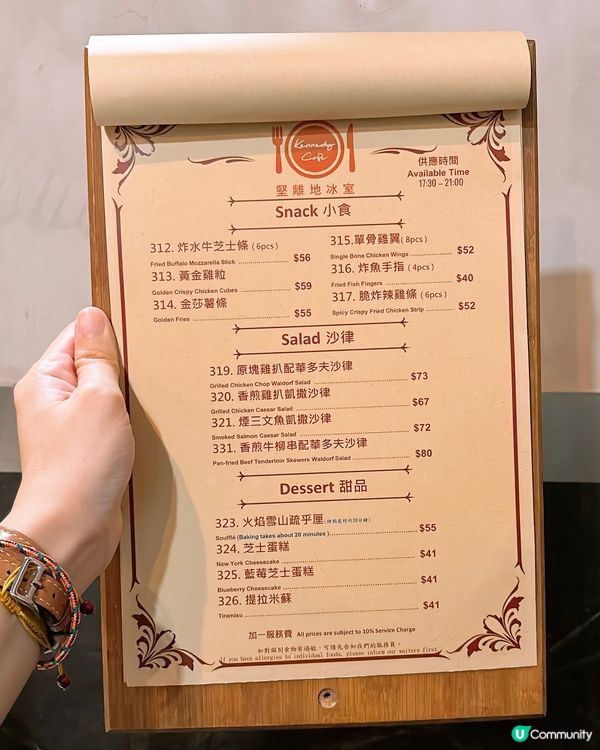 Kennedy
Café
堅離地冰室
供應時間
Available Time
17:30 – 21:00
Snack 小食
312. 炸水牛芝士條 (6pcs)
Fried Buffalo Mozzarella Stick $56
313. 黃金雞粒
Golden Crispy Chicken Cubes $59
314. 金莎薯條
Golden Fries $55
315.單骨雞翼 (8pcs)
Single Bone Chicken Wings $52
316. 炸魚手指 (4pcs)
Fried Fish Fingers $40
317. 脆炸辣雞條 (6pcs)
Spicy Crispy Fried Chicken Strip $52
Salad 沙律
319. 原塊雞扒配華多夫沙律
Grilled Chicken Chop Waldorf Salad $73
320. 香煎雞扒凱撒沙律
Grilled Chicken Caesar Salad $67
321. 煙三文魚凱撒沙律
Smoked Salmon Caesar Salad $72
331. 香煎牛柳串配華多夫沙律
Pan-fried Beef Tenderloin Skewers Waldorf Salad $80
Dessert 甜品
323. 火焰雪山疏乎厘
Soufflé (Baking takes about 20 minutes) $55
324. 芝士蛋糕
New York Cheesecake $41
325. 藍莓芝士蛋糕
Blueberry Cheesecake $41
326. 提拉米蘇
Tiramisu $41
加一服務費 All prices are subject to 10% Service Charge
如對個別食物有過敏，可請先告知我們的服務員。
If you have allergies to individual foods, please inform our waiters first.
U Community